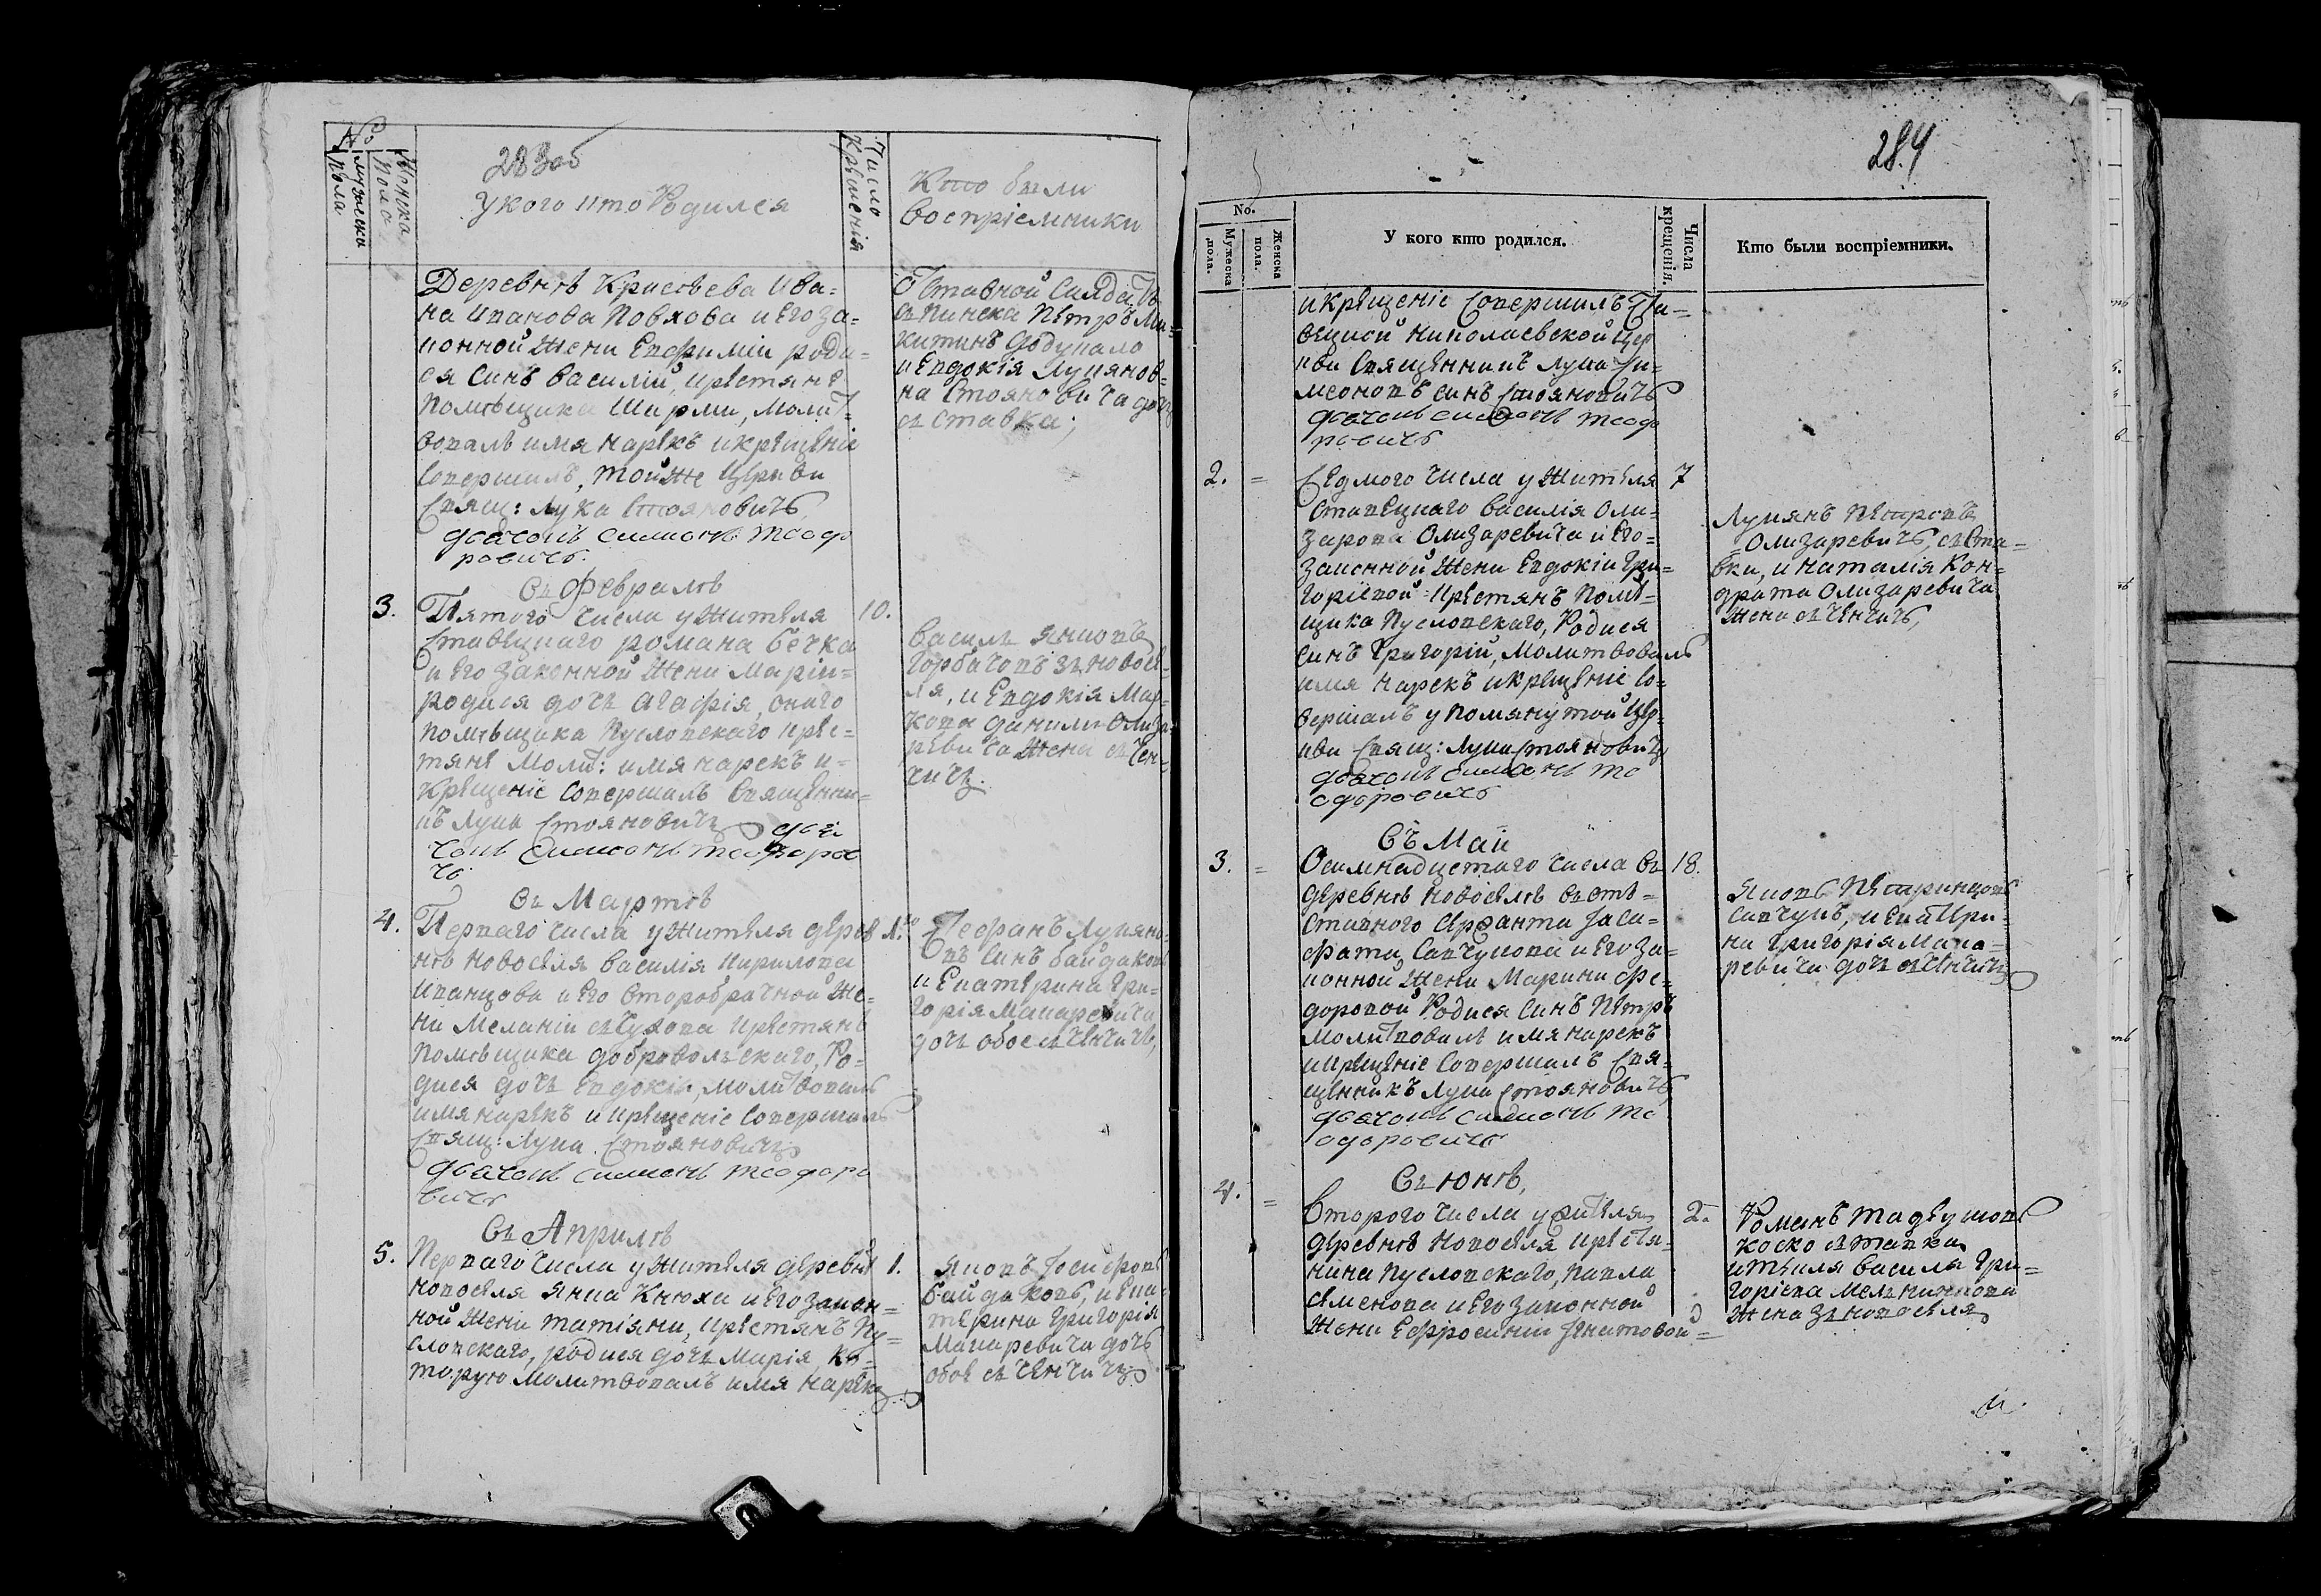 №
Мужеска пола
Женска пола
283 об
У кого кто Родился
Число Крещенія
Кто были
воспріемники
Деревнѣ Крисѣева Ива=
на Иванова Повхова и Его за=
конной Жени Евфиміи роди=
ся Синъ Василій, крестянѣ
помѣщика Ширми, Молит=
вовалъ имя нарекъ и крещеніе
Совершилъ, той Же Церкви
Свящ: Лука Стояновичъ
дьячокъ Симонъ Теодо
ровичъ.
Отставной Салдатъ
Пинска Петръ Ми=
китинъ
и Евдокія Лукянов=
на Стояновича дочъ
съ Ставка;
Въ Февралѣ
3.
Пятого числа у Жителя
10.
Ставецкаго романа бечка
и Его законной Жени Маріи=
родися дочъ Агафія, онаго
помѣщика Пусловскаго крес=
тянѣ Молит: имя нарекъ и=
Крещеніе Совершилъ Священни=
къ Лука Стояновичъ дья
чокъ Симонъ Теодорови
чъ
Василь Янковъ
Горбачовъ зъ новосѣ=
ля, и Евдокія Мар=
кова данила Олиза=
ревича Жена съ Чен=
чичъ.
Въ Мартѣ
4.
Перваго числа у Жителя дерев
1.го
нѣ Новосѣля Василія Кирилова
Иванцова и Его второбрачной Же=
ни Меланіи крестянѣ
помѣщика добровольскаго, Ро=
дися дочъ Евдокія, молитвовалъ
имя нарекъ и крещеніе Совершилъ
Свящ: Лука Стояновичъ
дьячокъ Симонъ Теодоро
вичъ
Стефанъ Лукяно=
въ Синъ байдаковъ
и Екатерина Гри=
горія Макаревича
дочъ обое съ Ченчичъ,
Въ Априлѣ
5.
Перваго числа у Жителя деревнѣ
1.
новосѣля Янка Кнюха и Его закон=
ной Жени Татіяни, крестянъ Пу=
словскаго, родися дочъ Марія, ко=
торую молитвовалъ имя нарекъ
Яковъ Іосифовъ
байдаковъ, и Ека=
терина Григорія
Макаревича дочъ
обоѣ съ Ченчичъ
284
No.
Мужеска пола.
Женска пола.
У кого кто родился.
Числа крещенія.
Кто были воспріемники.
и крещеніе Совершилъ Ста=
вецкой Николаевской Цер
кви Священникъ Лука Си=
меоновъ синъ Стояновичъ
дьячокъ Симонъ Теодо
ровичъ
2. =
Седмого числа у Жителя
7
Ставецкаго Василія Оли=
зарова Олизаревича и Его=
законной Жени Евдокіи Гри=
горіевой крестянъ Помѣ=
щика Пусловскаго, Родися
синъ Григорій, Молитвовалъ
имя нарекъ и крещеніе Со=
вершалъ у помянутой Цер
кви Свящ: Лука Стояновичъ
дьячокъ Симонъ Те
одоровичъ
Лукянъ Петровъ
Олизаревичъ, съ Ста=
вки, и Наталія Кон=
драта Олизаревича
Жена съ Ченчичъ,
Въ Маи
3. =
Осимнадцетаго числа въ
18.
деревнѣ Новосѣлѣ
и Его за=
конной Жени Марини Фе=
доровой Родися Синъ Петръ
молитвовалъ имя нарекъ
и крещеніе Совершилъ Свя=
щенникъ Лука Стояновичъ
дьячокъ Симонъ Те
одоровичъ
Яковъ
Савчукъ, и Екатери=
на Григорія Мака=
ревича дочъ съ Ченчичъ
Въ Юнѣ,
4. =
Второго числа у Жителя
2.
деревнѣ Новосѣля крестя=
нина Пусловскаго, Павла
Семенова и Его законной
Жени Ефросиніи Игнатовой=
Романъ Тадеушовъ
коско съ Ставка
Жителя Василя Гри=
горіева Мельникова
Жена зъ новосѣля
и